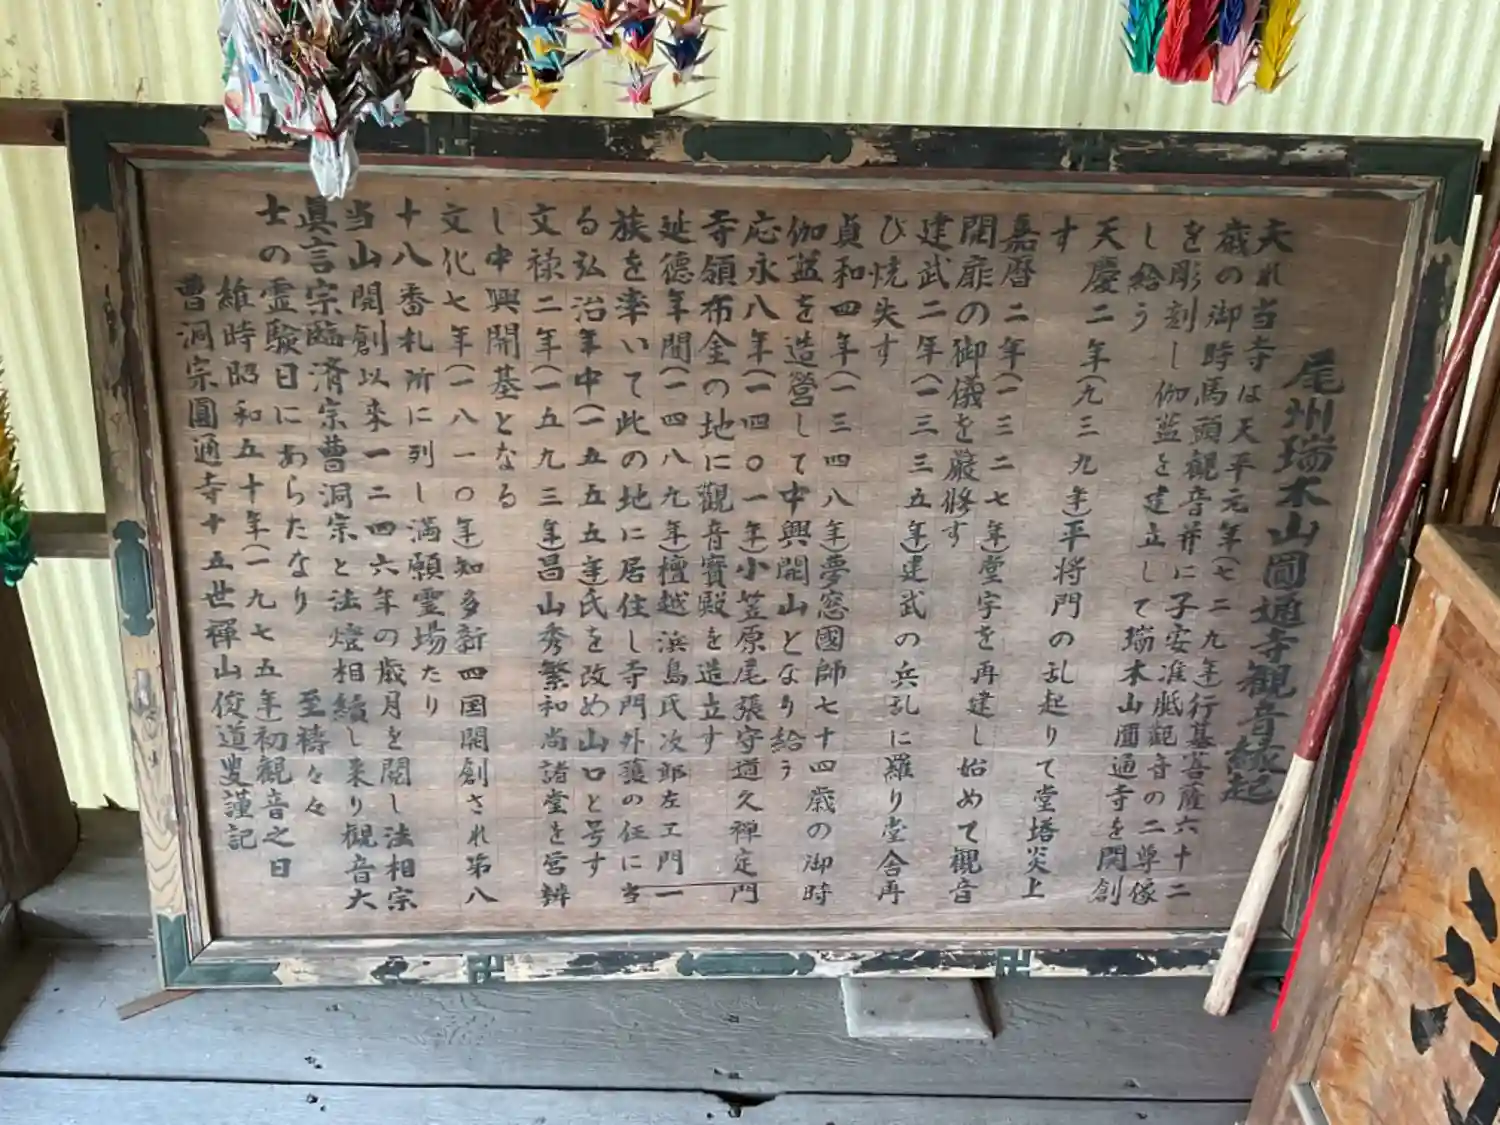 尾州瑞木山圓通寺観音縁起
夫れ当寺は天平元年(七二九年)行基菩薩六十二
歳の御時馬頭観音并に子安准胝観音の二尊像
を彫刻し伽藍を建立して瑞木山圓通寺を開創
し給う
天慶二年(九三九年)平将門の乱起りて堂塔炎上
す
嘉暦二年(一三二七年)堂宇を再建し始めて観音
開扉の御儀を厳修す
建武二年(一三三五年)建武の兵乱に羅り堂舎再
び焼失す
貞和四年(一三四八年)夢窓國師七十四歳の御時
伽藍を造営して中興開山となり給う
応永八年(一四〇一年)小笠原尾張守道久禅定門
寺領布金の地に觀音寶殿を造立す
延徳年間(一四八九年)檀越浜島氏次郎左エ門一
族を率いて此の地に居住し寺門外護の任に当
る弘治年中(一五五五年)氏を改め山口と号す
文禄二年(一五九三年)昌山秀繁和尚諸堂を営辨
し中興開基となる
文化七年(一八一〇年)知多新四国開創され第八
十八番札所に列し満願霊場たり
当山開創以来一二四六年の歳月を閲し法相宗
眞言宗臨済宗曹洞宗と法燈相續し来り観音大
士の霊験日にあらたなり　至禱々々
維時昭和五十年(一九七五年)初観音之日
曹洞宗圓通寺十五世禪山俊道叟謹記